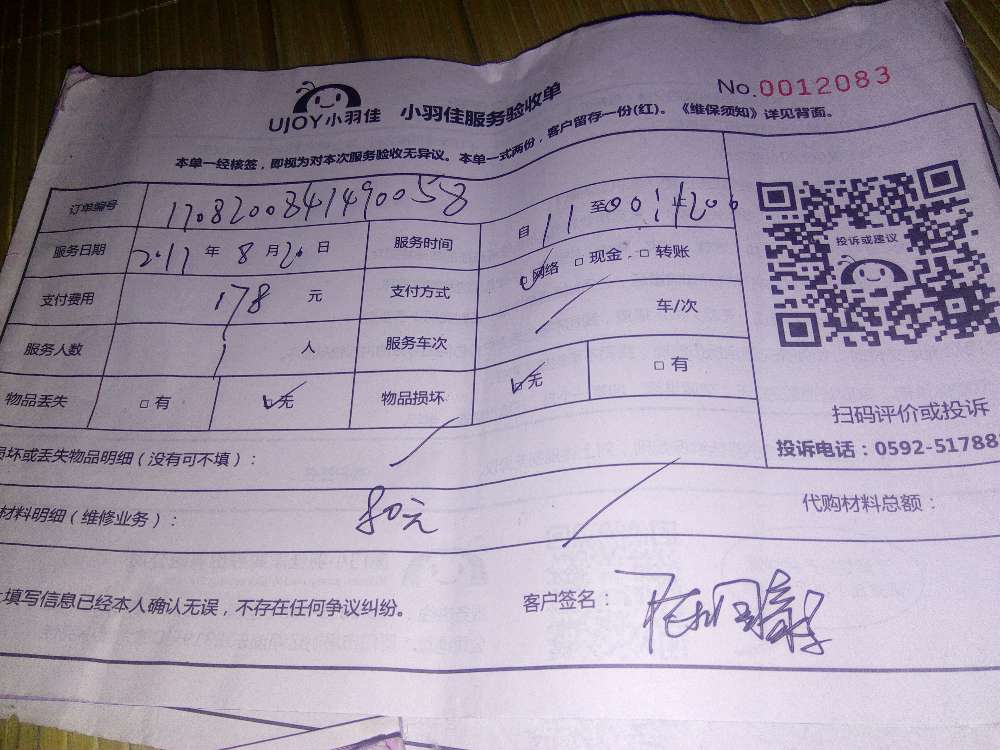 UJOY小羽佳 小羽佳服务验收单 No.0012083
本单一经核签，即视为对本次服务验收无异议。本单一式两份，客户留存一份(红)。《维保须知》详见背面。
订单编号 1708200841490058
服务日期 2017 年 8 月 20 日 服务时间 自 11 至 止
支付费用 178 元 支付方式 网络 □ 现金 □ 转账
服务人数 1 人 服务车次 车/次
物品丢失 □ 有 □无 物品损坏 □无 □ 有
投诉或建议
扫码评价或投诉
投诉电话：0592-51788
损坏或丢失物品明细（没有可不填）：
材料明细（维修业务）： 80元 代购材料总额：
上填写信息已经本人确认无误，不存在任何争议纠纷。 客户签名：